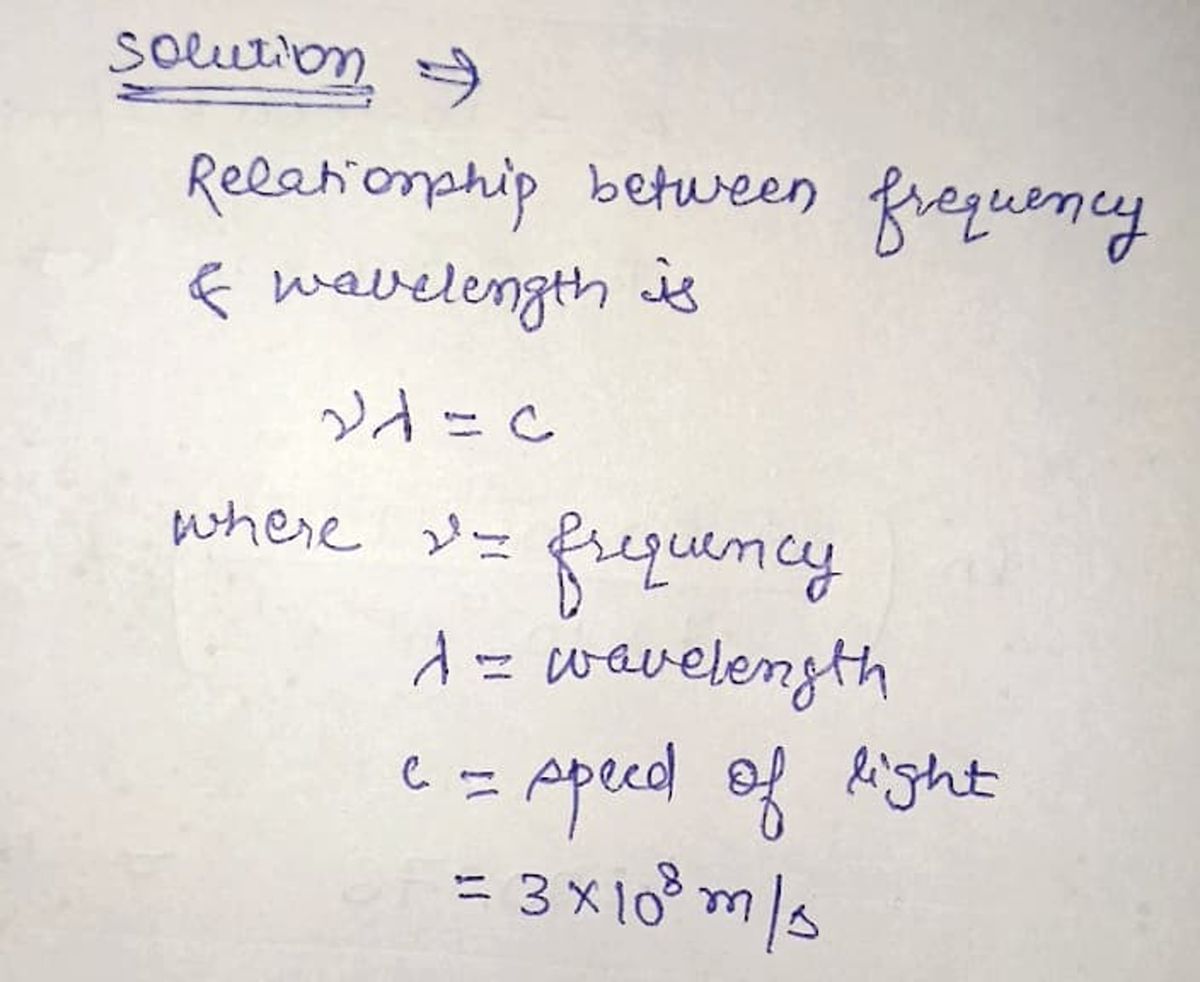 Solution ⇒
Relationship between frequency
& wavelength is
νλ = c
where ν = frequency
λ = wavelength
c = speed of light
= 3 × 10⁸ m/s